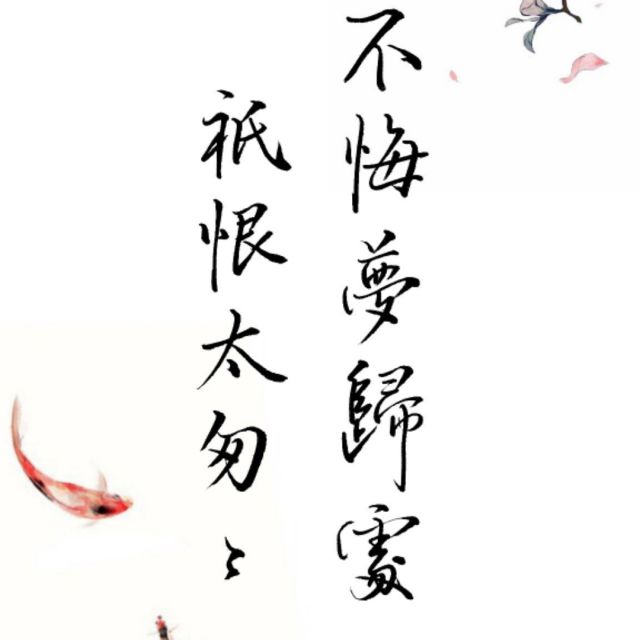 不悔夢歸處
祇恨太匆〻